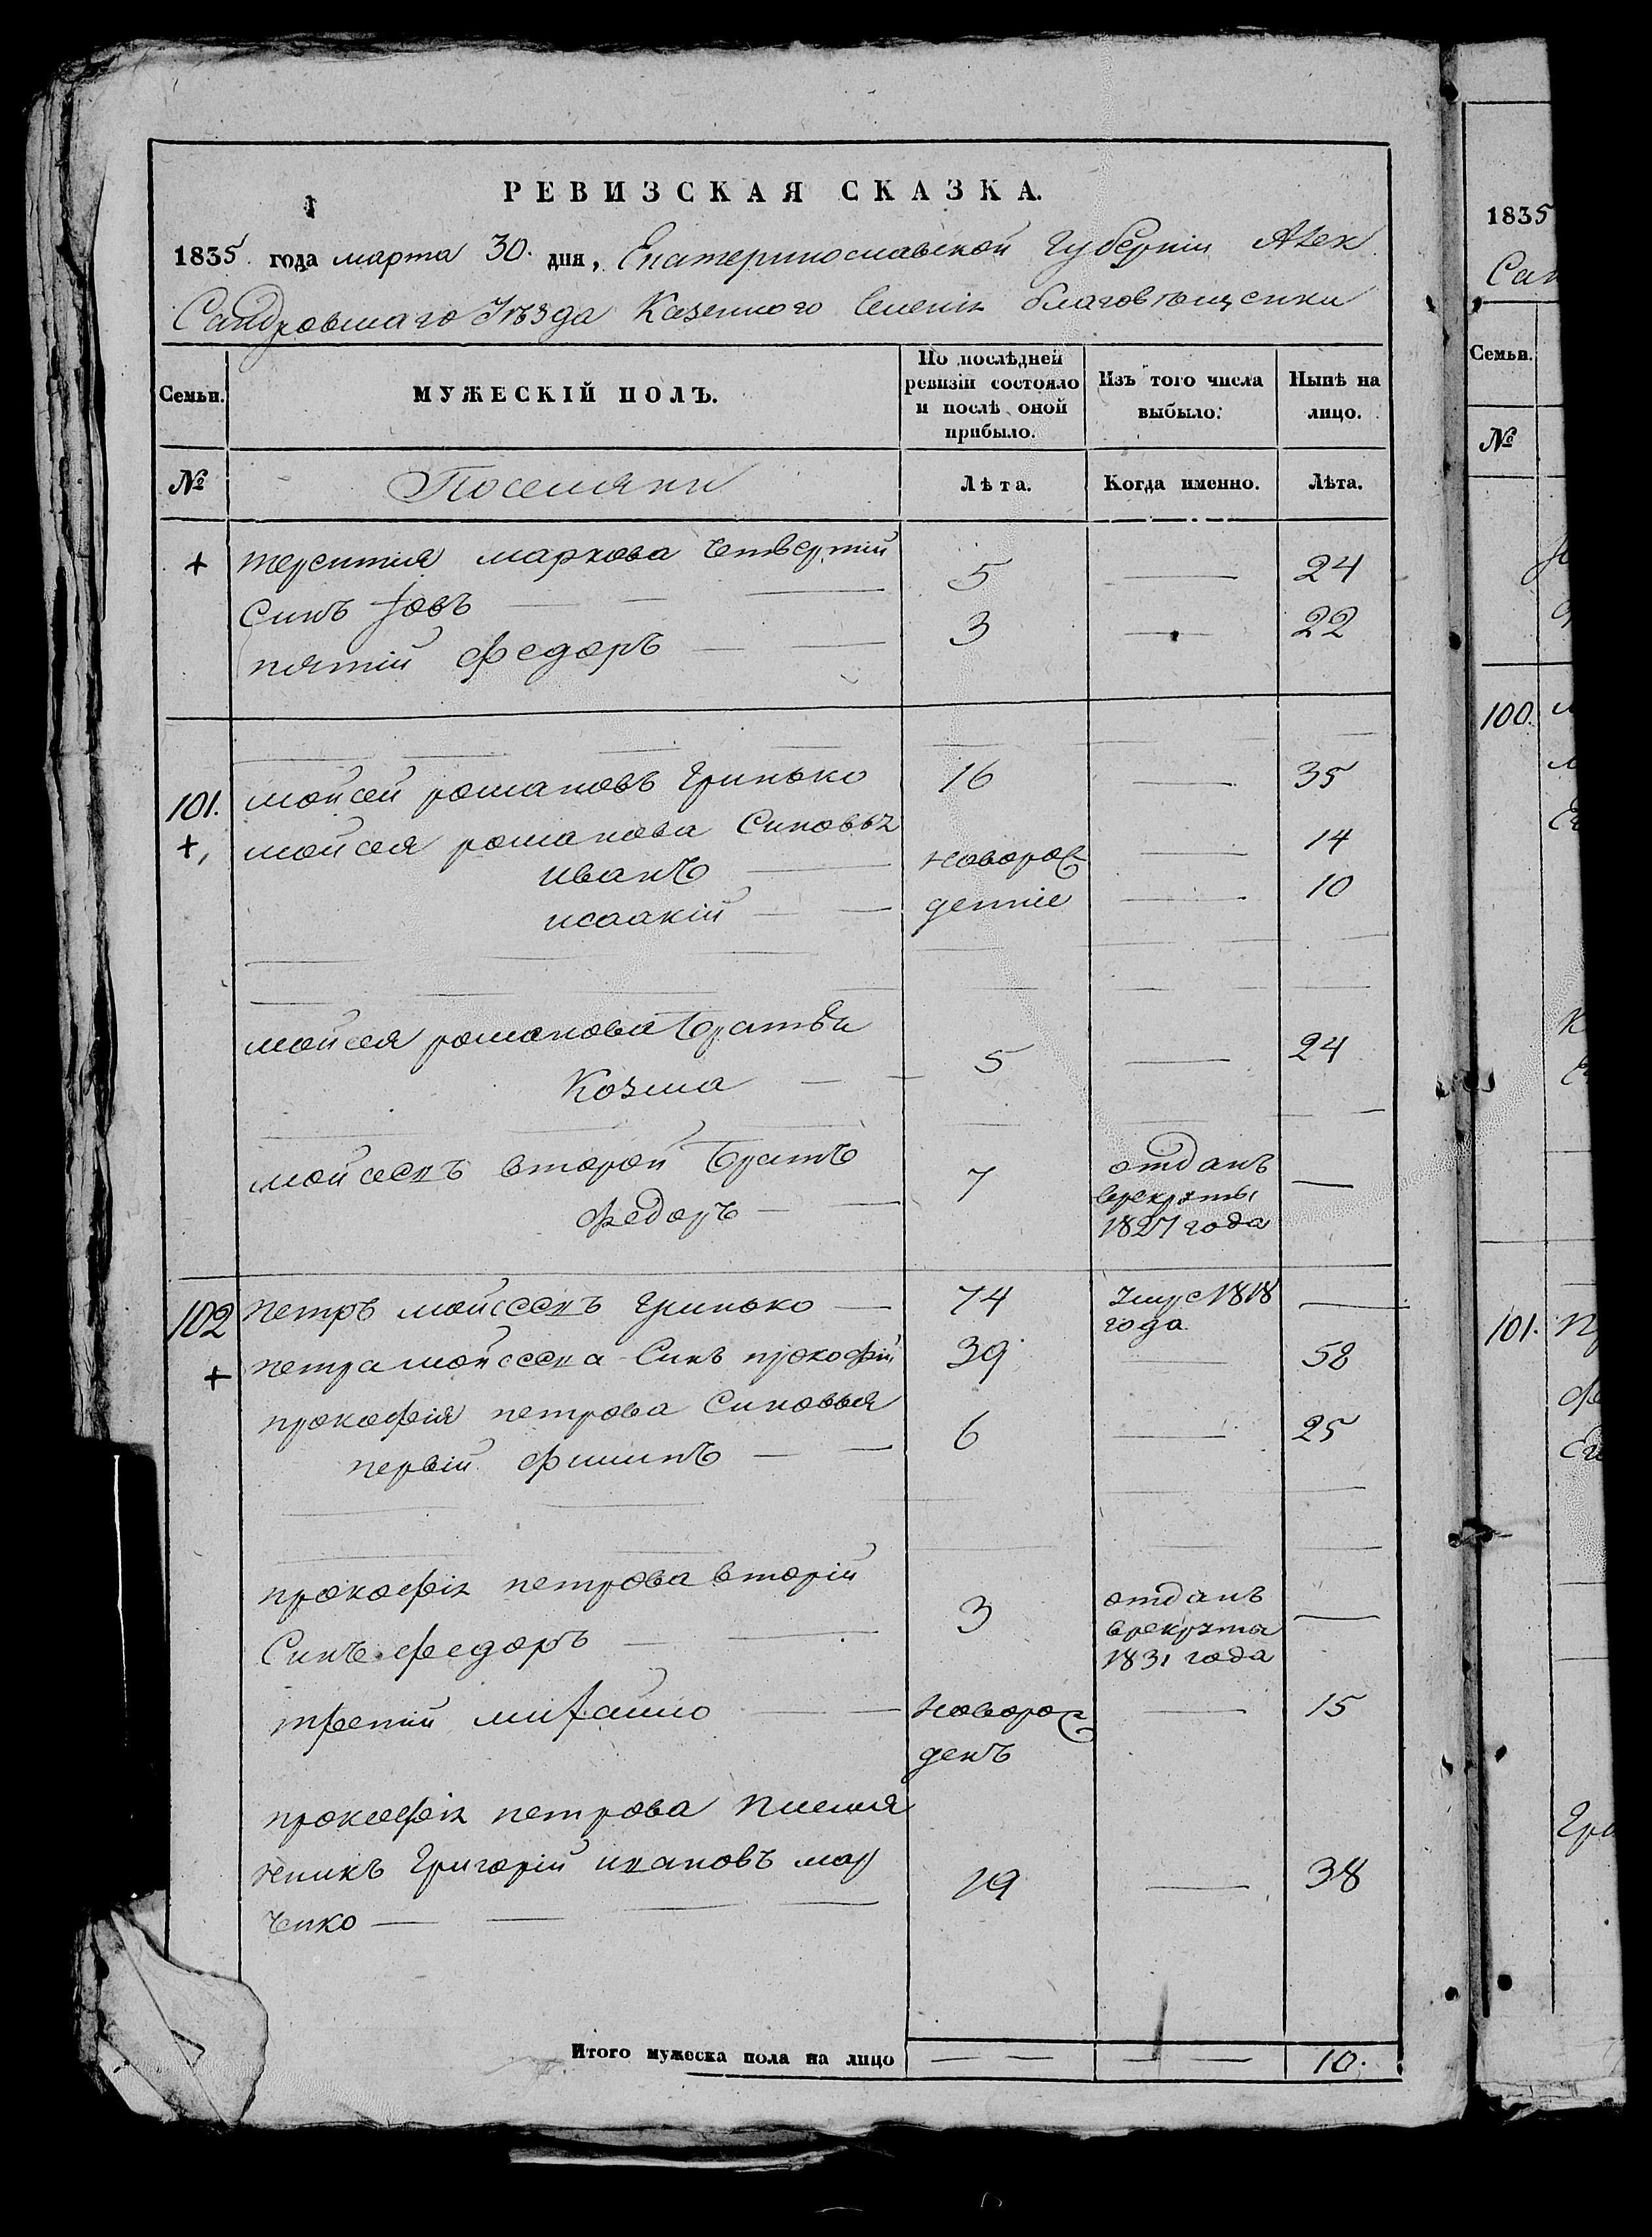 РЕВИЗСКАЯ СКАЗКА.
1835. года марта 30. дня, Екатеринославской Губерніи Алек
Сандровшаго Уѣзда Казенного Селенія благовѣщенки
Семьи. МУЖЕСКІЙ ПОЛЪ. По послѣдней ревизіи состояло и послѣ оной прибыло. Изъ того числа выбыло. Нынѣ на лицо.
№ Поселяни Лѣта. Когда именно. Лѣта.
+ терентия маркова четвертій
синъ Іовъ — — — 5 — 24
пятій федоръ — — 3 — 22
101. мойсей романовъ Гринько 16 — 35
+, мойсея романова Синовья
иванъ — новорож — 14
исаакій — — денніе — 10
мойсея романова братья
Козма — — 5 — 24
мойсеевъ второй братъ 7 отданъ —
федоръ — — врекруты
1827 года
102 петръ мойсеевъ Гринько — 74 умре 1818 —
года
+ петра мойсеева Синъ прокофій 39 — 58
прокофія петрова Синовья
первій филипъ — — 6 — 25
прокофія петрова вторій 3 отданъ —
Синъ федоръ — — врекруты
1831 года
третій михайло — — новорож — 15
денъ
прокофія петрова племя
нникъ Григорій ивановъ мар 19 — 38
ченко — — — —
Итого мужеска пола на лицо — — — — 10.
1835
Сан
Семьи.
№
100.
101.